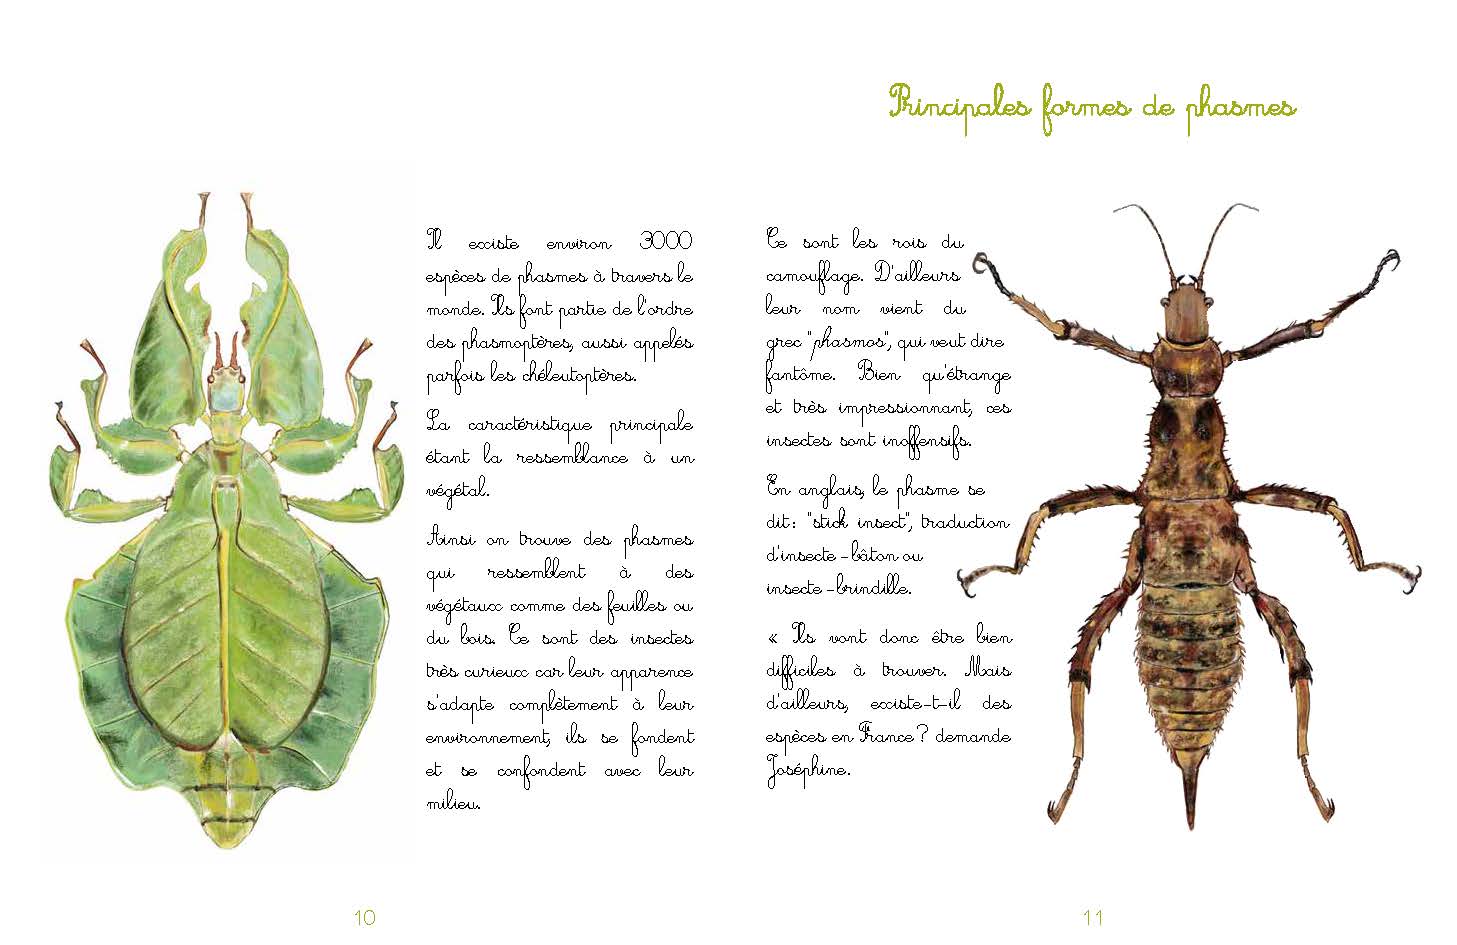 Principales formes de phasmes
Il existe environ 3000
espèces de phasmes à travers le
monde. Ils font partie de l'ordre
des phasmoptères, aussi appelés
parfois les chéleutoptères.
La caractéristique principale
étant la ressemblance à un
végétal.
Ainsi on trouve des phasmes
qui ressemblent à des
végétaux comme des feuilles ou
du bois. Ce sont des insectes
très curieux car leur apparence
s'adapte complètement à leur
environnement, ils se fondent
et se confondent avec leur
milieu.
10
Ce sont les rois du
camouflage. D'ailleurs
leur nom vient du
grec "phasmos", qui veut dire
fantôme. Bien qu'étrange
et très impressionnant, ces
insectes sont inoffensifs.
En anglais, le phasme se
dit : "stick insect", traduction
d'insecte-bâton ou
insecte-brindille.
« Ils vont donc être bien
difficiles à trouver. Mais
d'ailleurs, existe-t-il des
espèces en France ? demande
Joséphine.
11